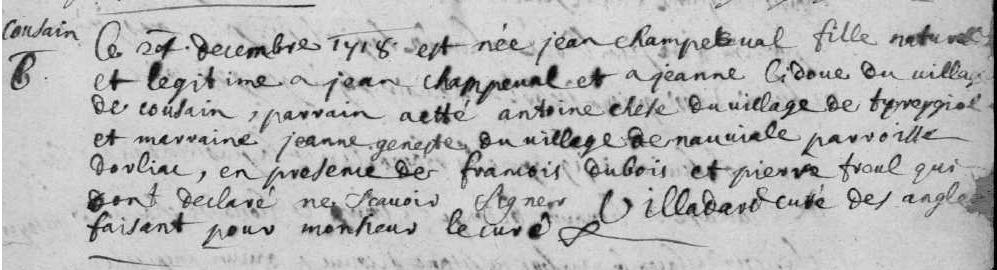 Cousain
B.
Ce 27. decembre 1718. est née jean champeval fille naturelle
et legitime a jean champeval et a jeanne Cidoue du village
de cousain, parrain aetté antoine chese du village de
et marraine jeanne geneste du village de nauviale parroisse
dorliac, en presence de francois dubois et pierre froul qui
ont declaré ne Scavoir Signer Villadard curé des angles
faisant pour monsieur le curé